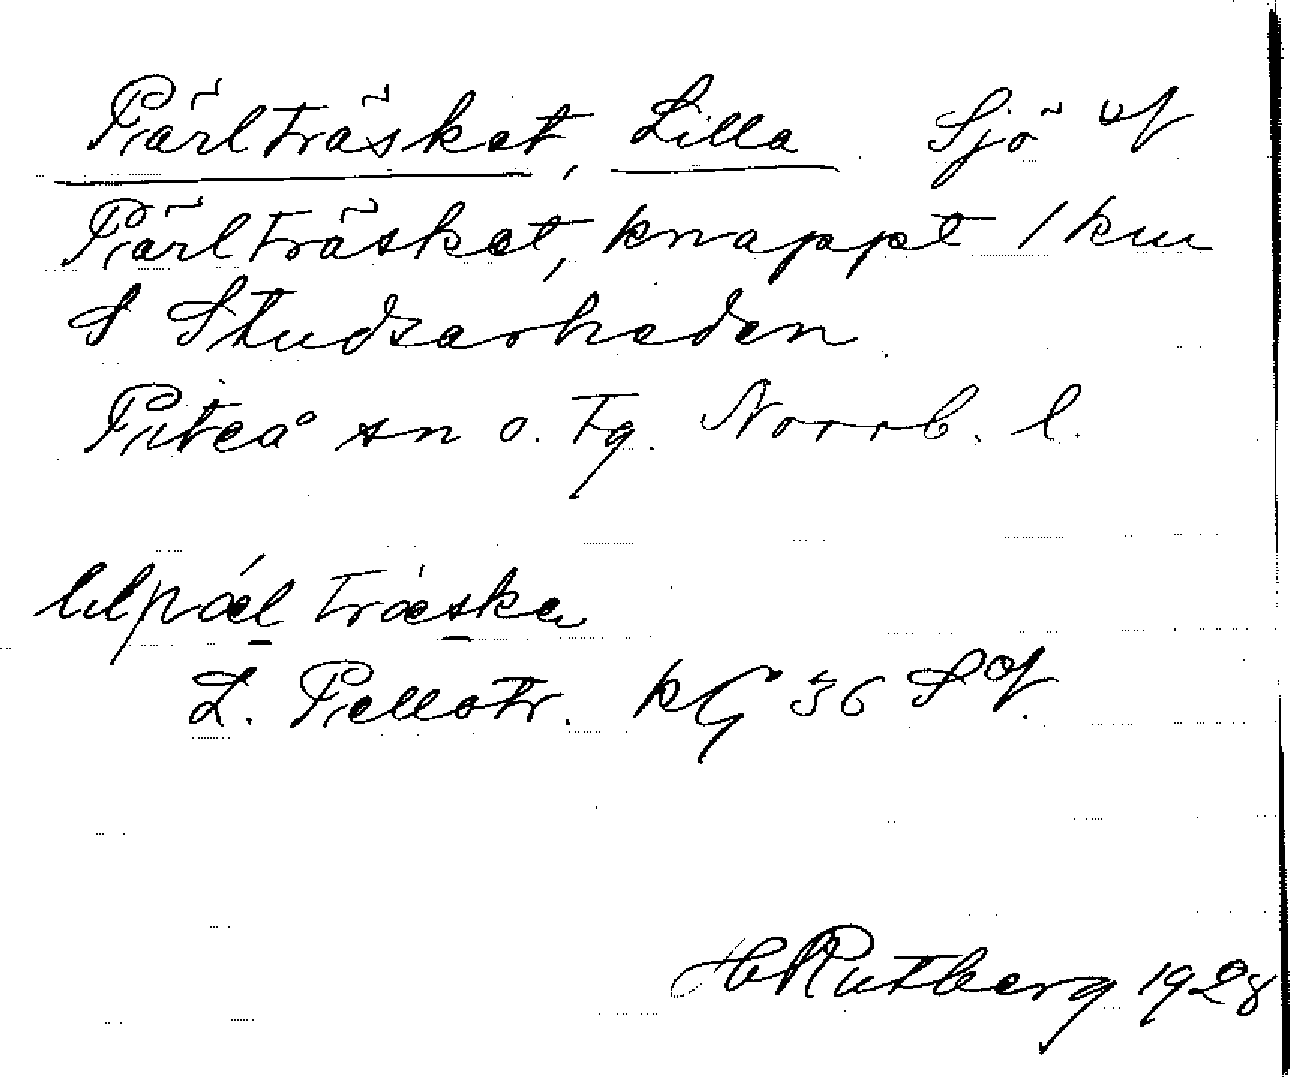 Pärlträsket, Lilla Sjö v
Pärlträsket, knappt 1 km
S Studsarheden
Piteå sn o. tg. Norrb. l.
lılpǽl træska
L. Pellotr. kG 36 SV.
H Rutberg 1928